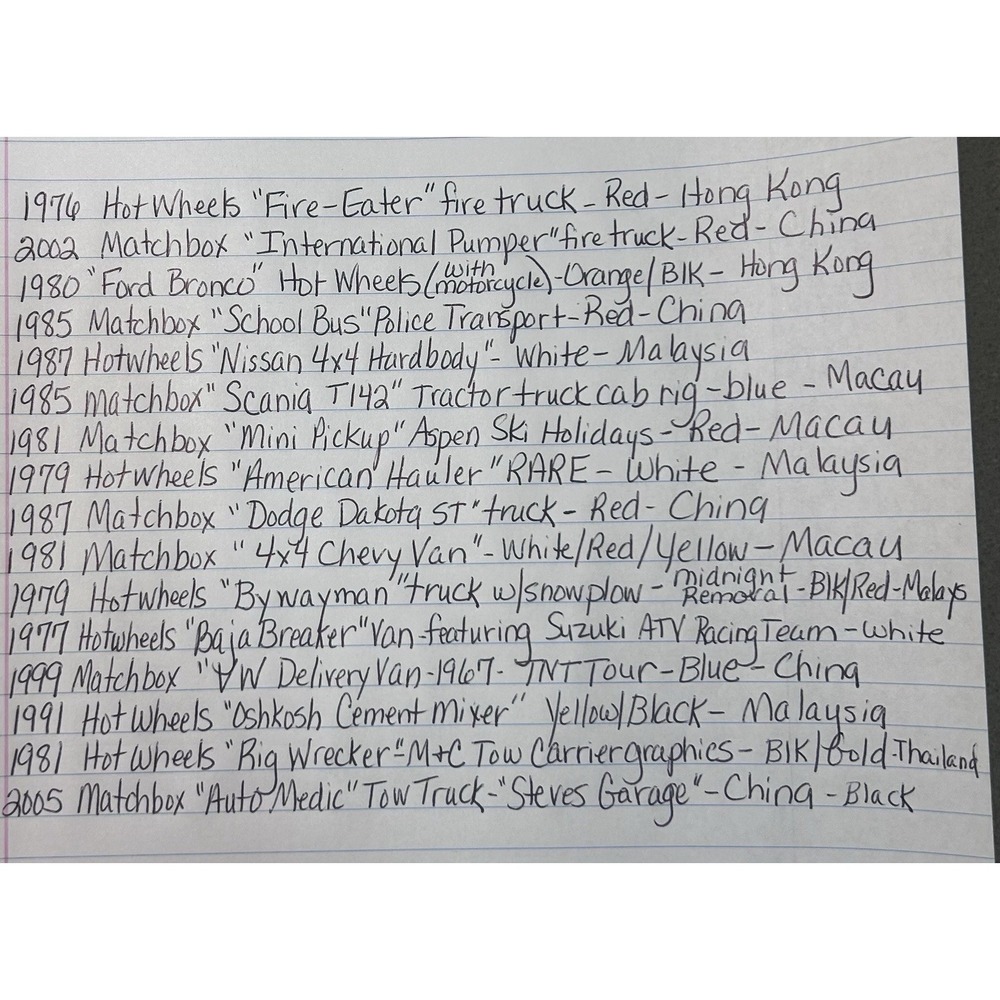 1976 Hot Wheels "Fire-Eater" fire truck - Red - Hong Kong
2002 Matchbox "International Pumper" fire truck - Red - China
1980 "Ford Bronco" Hot Wheels (with motorcycle) - Orange/Blk - Hong Kong
1985 Matchbox "School Bus" Police Transport - Red - China
1987 Hotwheels "Nissan 4x4 Hardbody" - White - Malaysia
1985 matchbox "Scania T142" Tractor truck cab rig - blue - Macau
1981 Matchbox "Mini Pickup" Aspen Ski Holidays - Red - Macau
1979 Hotwheels "American Hauler" RARE - White - Malaysia
1987 Matchbox "Dodge Dakota ST" truck - Red - China
1981 Matchbox "4x4 Chevy Van" - White/Red/Yellow - Macau
1979 Hotwheels "Bywayman" truck w/snowplow - midnight Removal - Blk/Red - Malays
1977 Hotwheels "Baja Breaker" Van - featuring Suzuki ATV Racing Team - White
1999 Matchbox "VW Delivery Van - 1967 - TNT Tour - Blue - China
1991 Hot Wheels "Oshkosh Cement mixer" Yellow/Black - Malaysia
1981 Hot Wheels "Rig Wrecker" - M+C Tow Carrier graphics - Blk/Gold - Thailand
2005 Matchbox "Auto Medic" Tow Truck - "Steves Garage" - China - Black